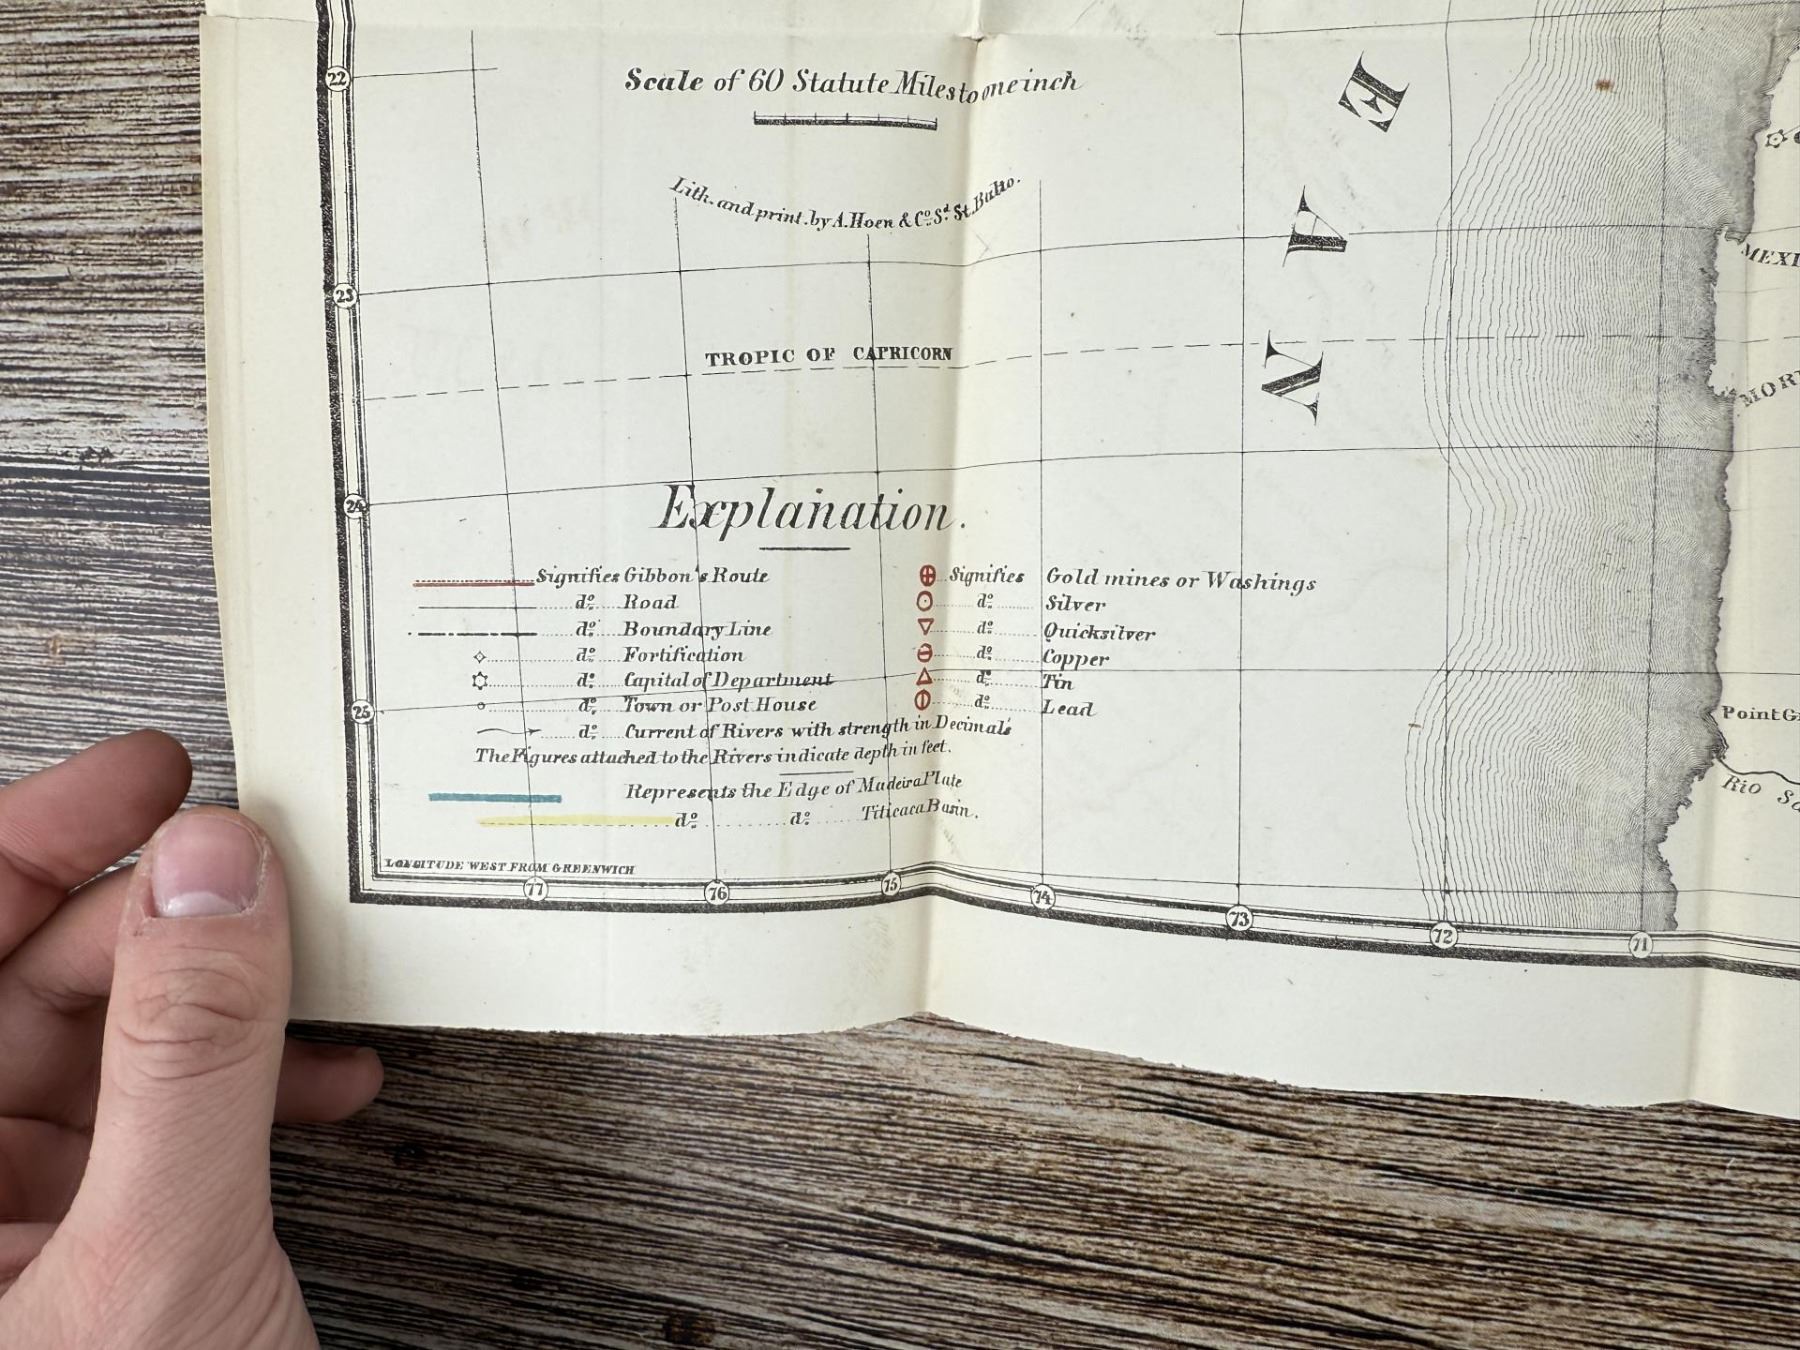 22
Scale of 60 Statute Miles to one inch
E
Lith. and print. by A. Hoen & Co. Sd. St. Balto.
V
MEXI
23
TROPIC OF CAPRICORN
N
MOR
24
Explanation.
Signifies Gibbon's Route
do. Road
do. Boundary Line
do. Fortification
do. Capital of Department
do. Town or Post House
do. Current of Rivers with strength in Decimals
The Figures attached to the Rivers indicate depth in feet.
Signifies Gold mines or Washings
do. Silver
do. Quicksilver
do. Copper
do. Tin
do. Lead
25
Point G
Rio Sa
Represents the Edge of Madeira Plate
do. do. Titicaca Basin.
LONGITUDE WEST FROM GREENWICH
77 76 75 74 73 72 71